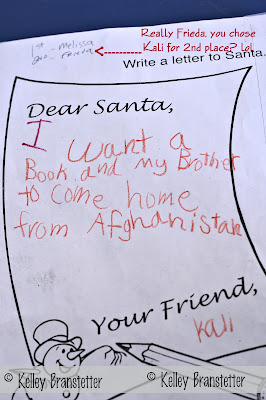 Really Frieda, you chose
Kali for 2nd place? lol
1st - Melissa
2nd - Frieda
Write a letter to Santa.
Dear Santa,
I want a
Book and my Brother
to come home
from Afghanistan
Your Friend,
Kali
© Kelley Branstetter © Kelley Branstetter